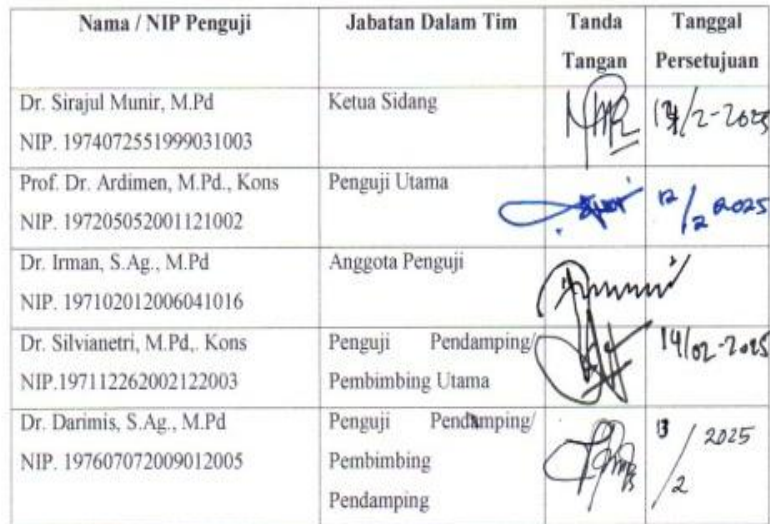 Nama / NIP Penguji
Jabatan Dalam Tim
Tanda
Tangan
Tanggal
Persetujuan
Dr. Sirajul Munir, M.Pd
NIP. 1974072551999031003
Ketua Sidang
/2-2025
Prof. Dr. Ardimen, M.Pd., Kons
NIP. 197205052001121002
Penguji Utama
12/2 2025
Dr. Irman, S.Ag., M.Pd
NIP. 197102012006041016
Anggota Penguji
Dr. Silvianetri, M.Pd,. Kons
NIP.197112262002122003
Penguji Pendamping/
Pembimbing Utama
14/02-2025
Dr. Darimis, S.Ag., M.Pd
NIP. 197607072009012005
Penguji Pendamping/
Pembimbing
Pendamping
13/2 2025